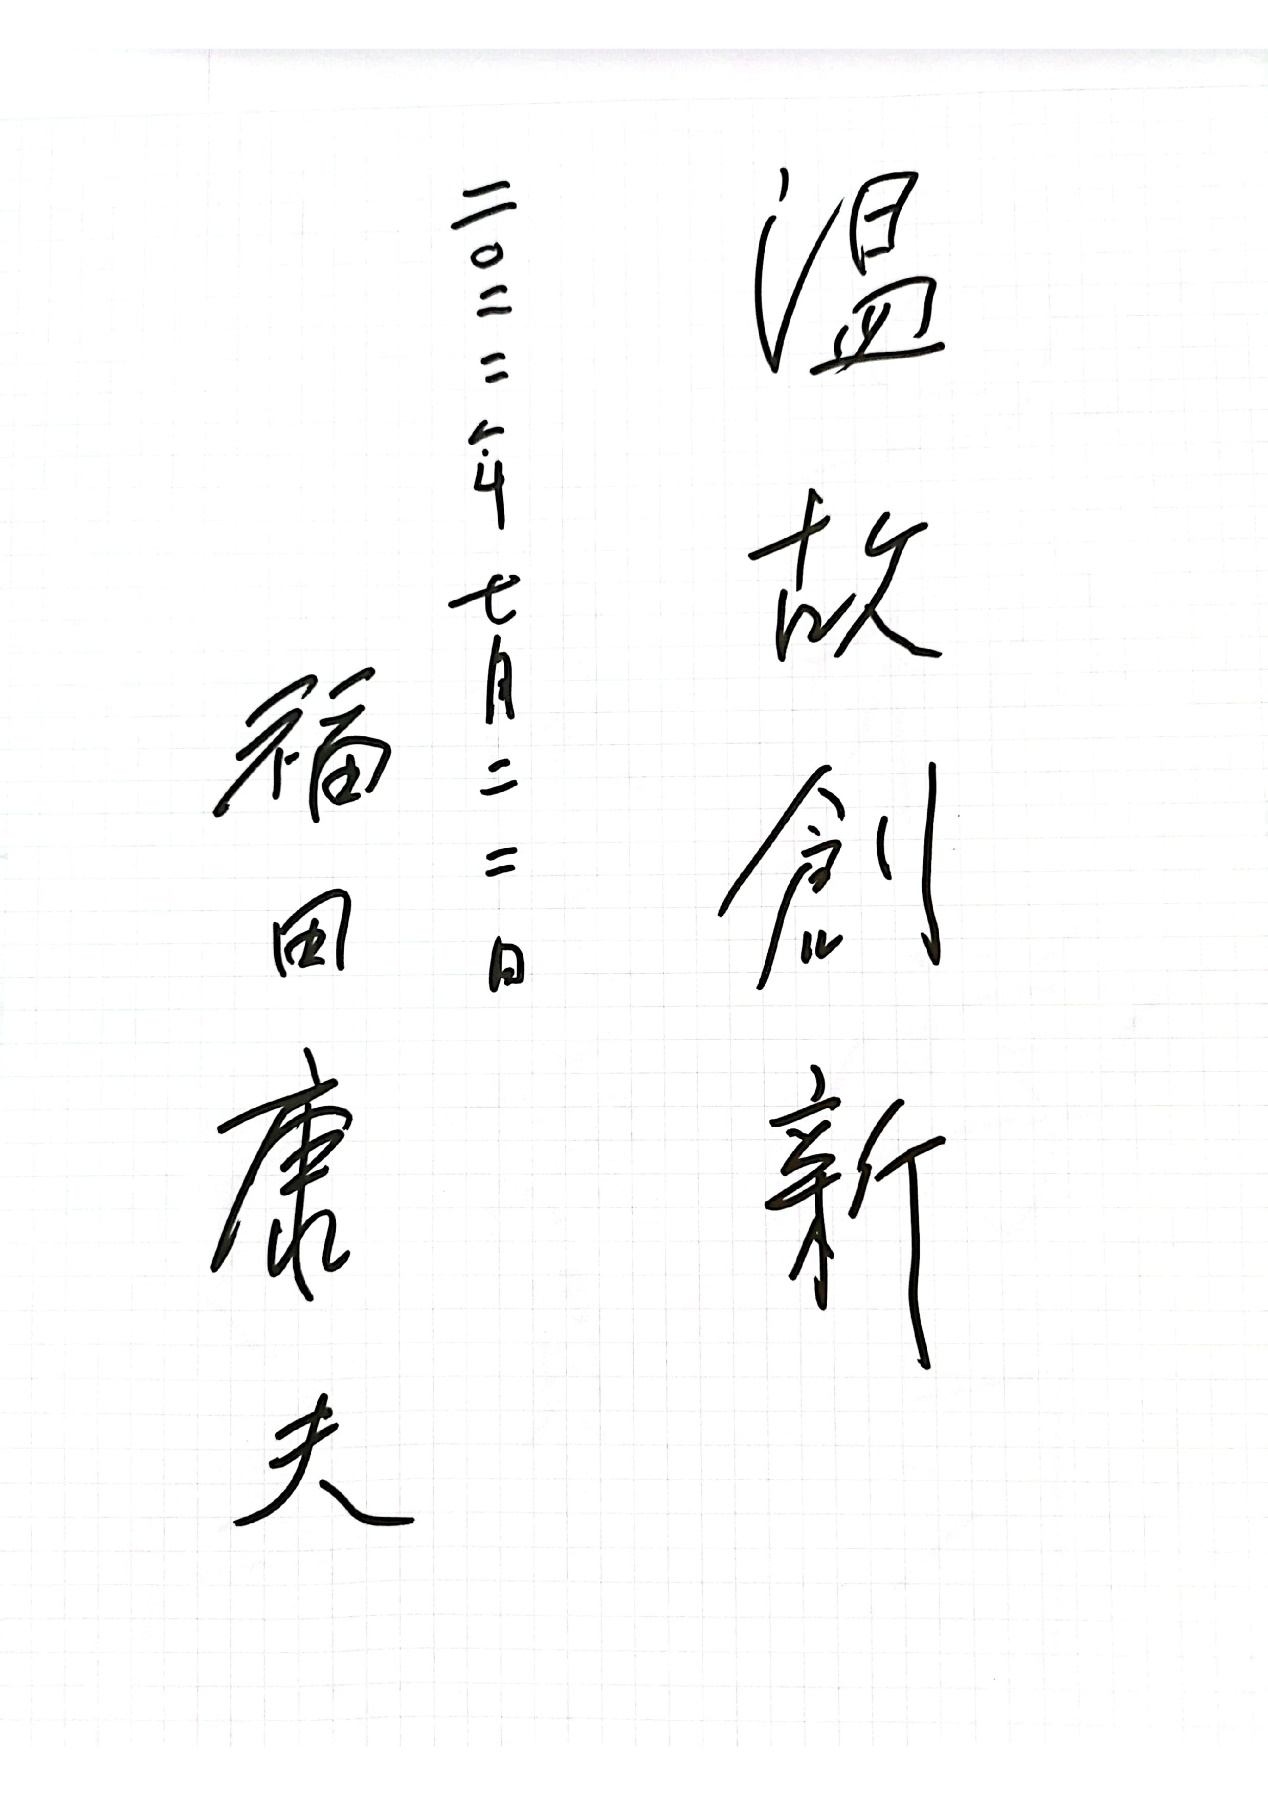 温故創新
二〇二二年七月二二日
福田康夫